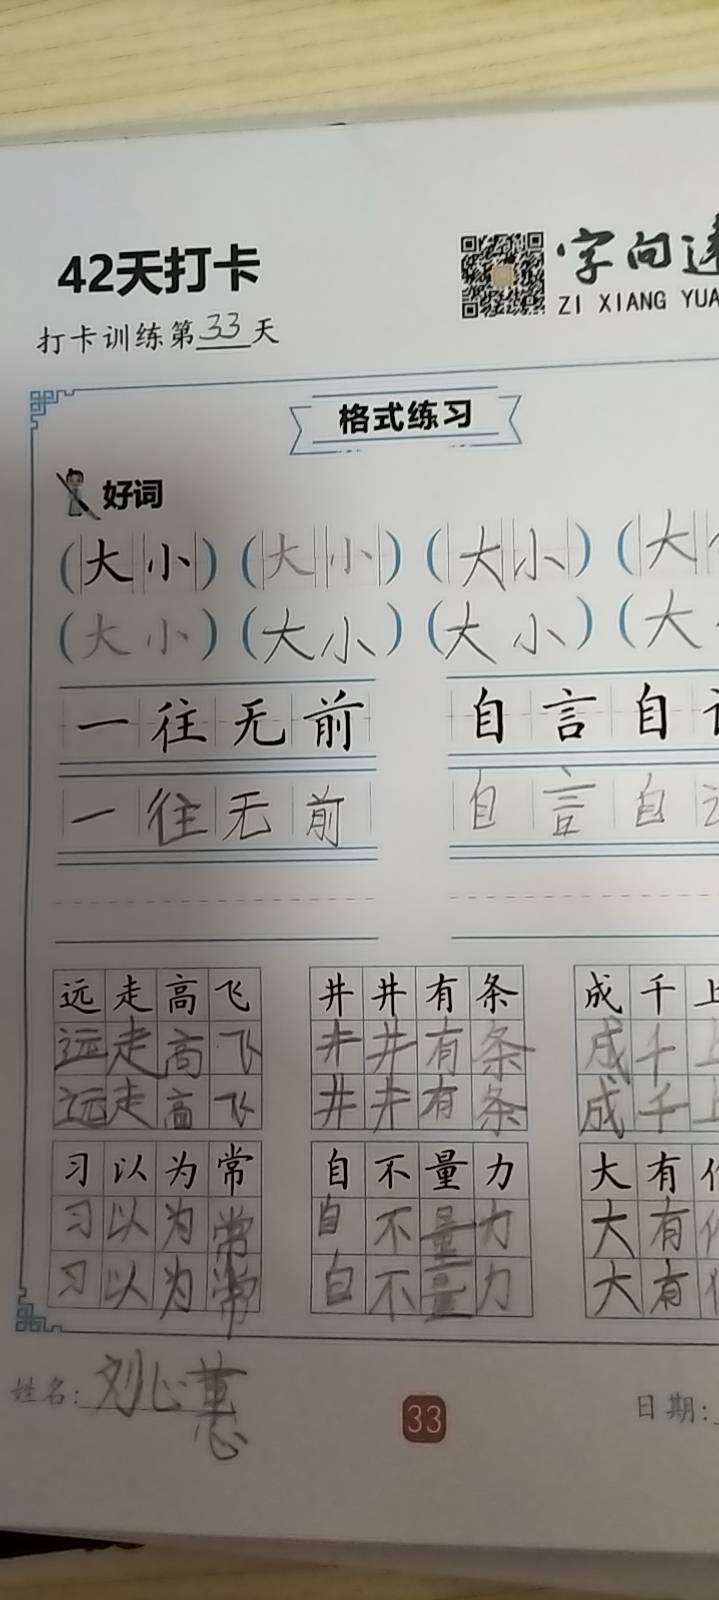 42天打卡
字向
ZI XIANG YUA
打卡训练第33天
格式练习
好词
(大小)(大小)(大小)(大
(大小)(大小)(大小)(大
一往无前 自言自
一往无前 自言自
远走高飞 井井有条 成千上
远走高飞 井井有条 成千上
远走高飞 井井有条 成千上
习以为常 自不量力 大有
习以为常 自不量力 大有
习以为常 自不量力 大有
姓名:刘心慧 33 日期: